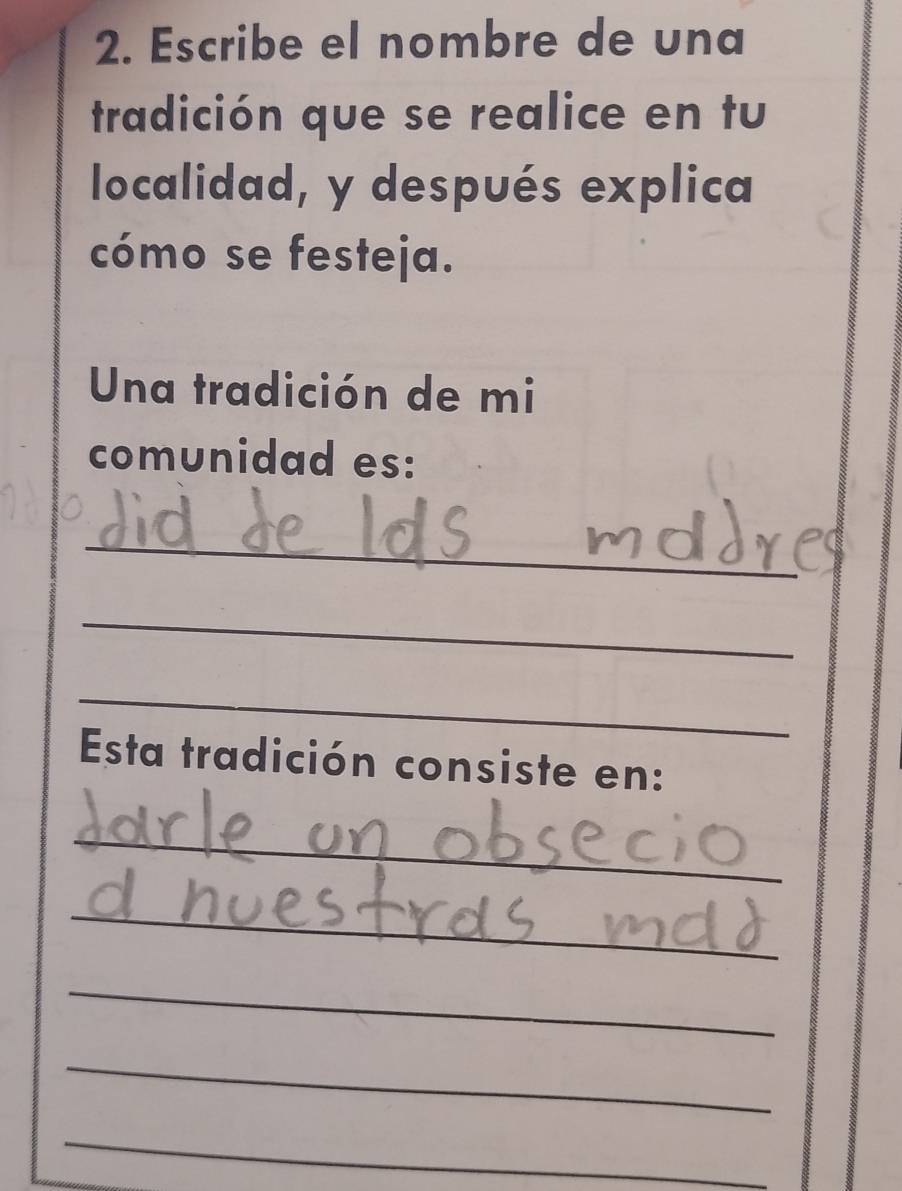 2. Escribe el nombre de una
tradición que se realice en tu
localidad, y después explica
cómo se festeja.
Una tradición de mi
comunidad es:
dia de las maddres
Esta tradición consiste en:
darle un obsecio
a nuestras mad